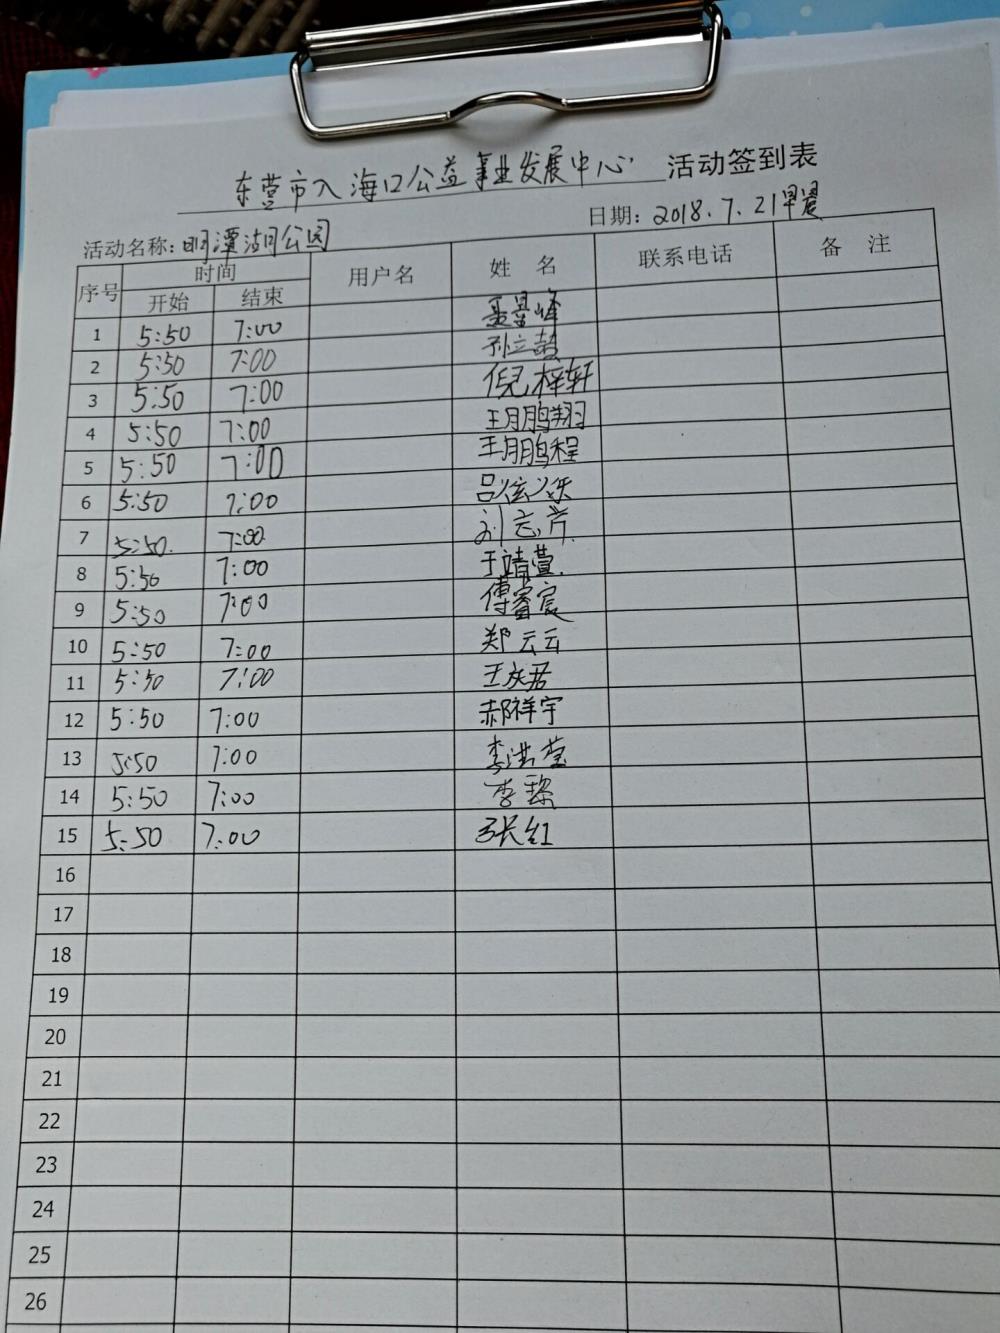 东营市入海口公益事业发展中心 活动签到表
活动名称: 明潭湖公园 日期: 2018.7.21早晨
序号 时间 用户名 姓名 联系电话 备注
开始 结束
1 5:50 7:00 聂星峰
2 5:50 7:00 孙立喆
3 5:50 7:00 倪梓轩
4 5:50 7:00 王鹏翔
5 5:50 7:00 王鹏程
6 5:50 7:00 吕
7 5:50. 7:00 刘志芹.
8 5:50 7:00 于靖萱.
9 5:50 7:00 傅睿宸
10 5:50 7:00 郑云云
11 5:50 7:00 王庆君
12 5:50 7:00 郝祥宇
13 5:50 7:00 李洪莹
14 5:50 7:00 李
15 5:50 7:00 张红
16
17
18
19
20
21
22
23
24
25
26